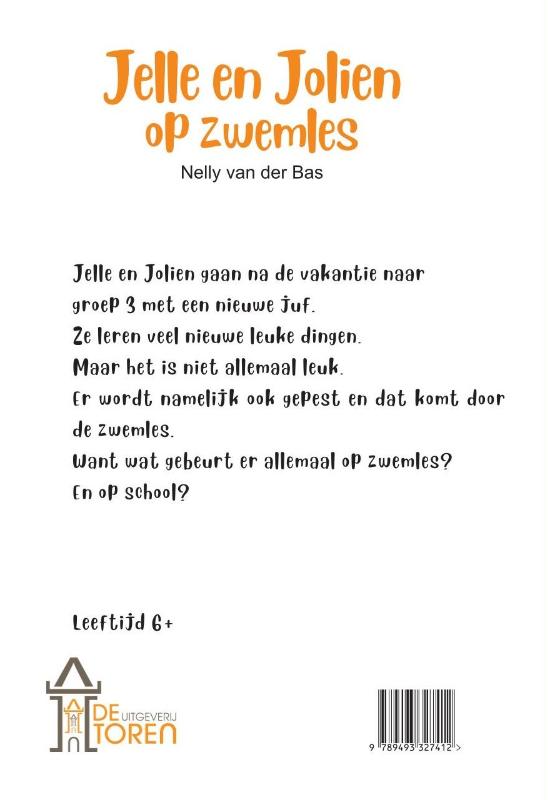 Jelle en Jolien
op zwemles
Nelly van der Bas
Jelle en Jolien gaan na de vakantie naar
groep 3 met een nieuwe juf.
Ze leren veel nieuwe leuke dingen.
Maar het is niet allemaal leuk.
Er wordt namelijk ook gepest en dat komt door
de zwemles.
Want wat gebeurt er allemaal op zwemles?
En op school?
Leeftijd 6+
DE UITGEVERIJ
TOREN
9 789493 327412 >